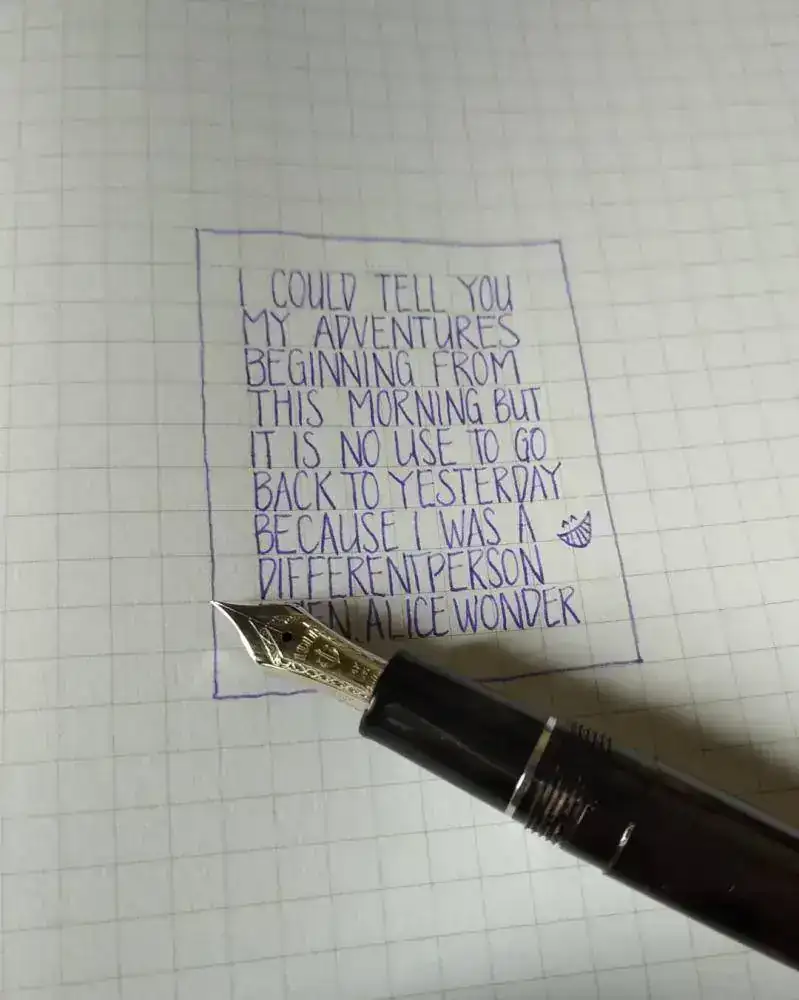 I COULD TELL YOU
MY ADVENTURES
BEGINNING FROM
THIS MORNING BUT
IT IS NO USE TO GO
BACK TO YESTERDAY
BECAUSE I WAS A
DIFFERENT PERSON
ALICE WONDER